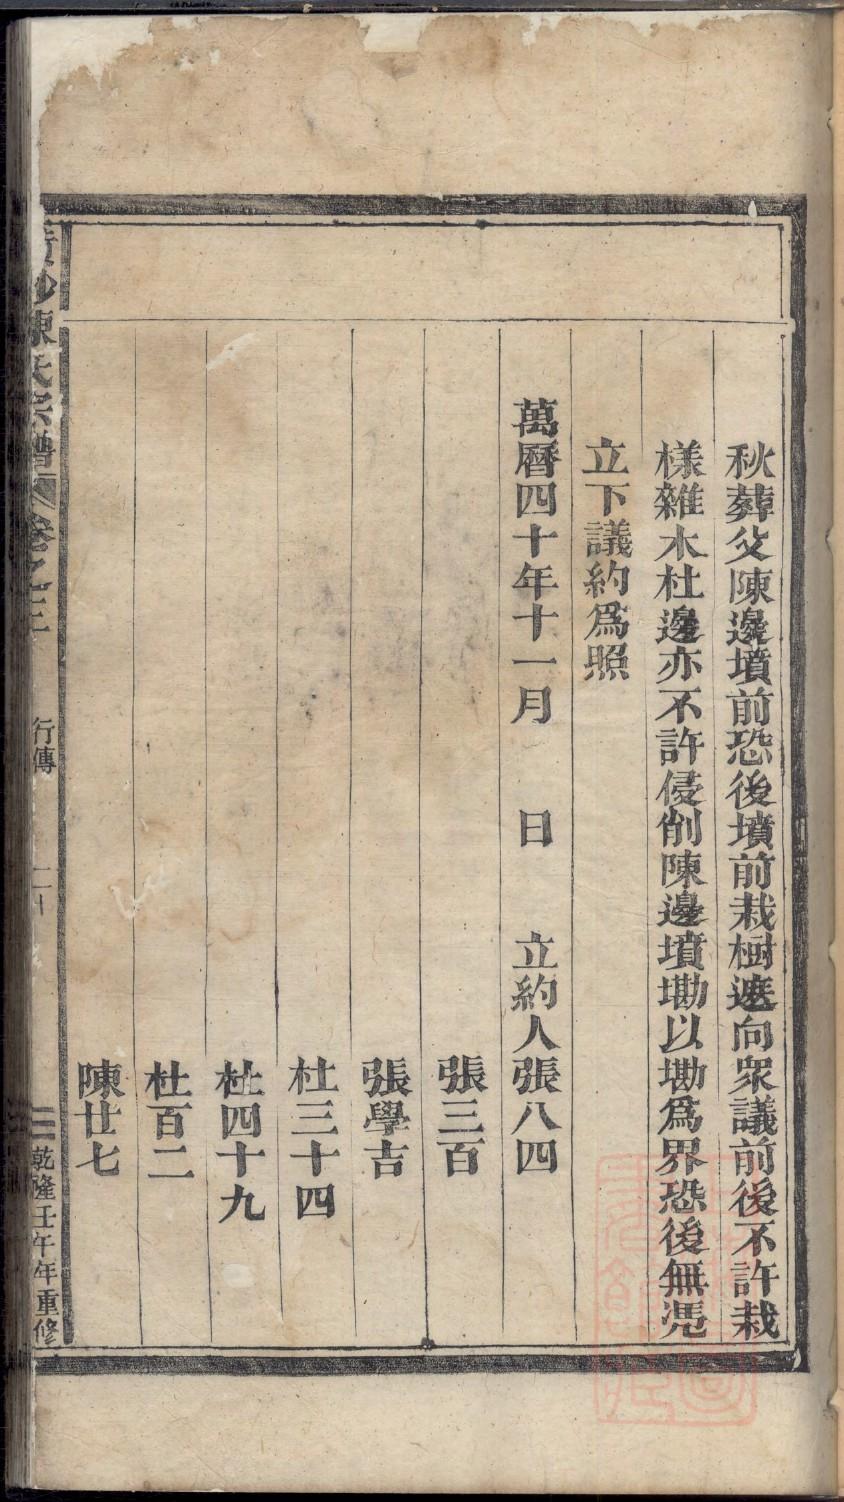 秋葬父陳邊墳前恐後墳前栽樹遮向衆議前後不許栽
樣雜木杜邊亦不許侵削陳邊墳墈以墈爲界恐後無凴
立下議約爲照
萬曆四十年十一月 日 立約人張八四
張三百
張學吉
杜三十四
杜四十九
杜百二
陳廿七
陳氏宗譜 卷之三 行傳 乾隆壬午年重修